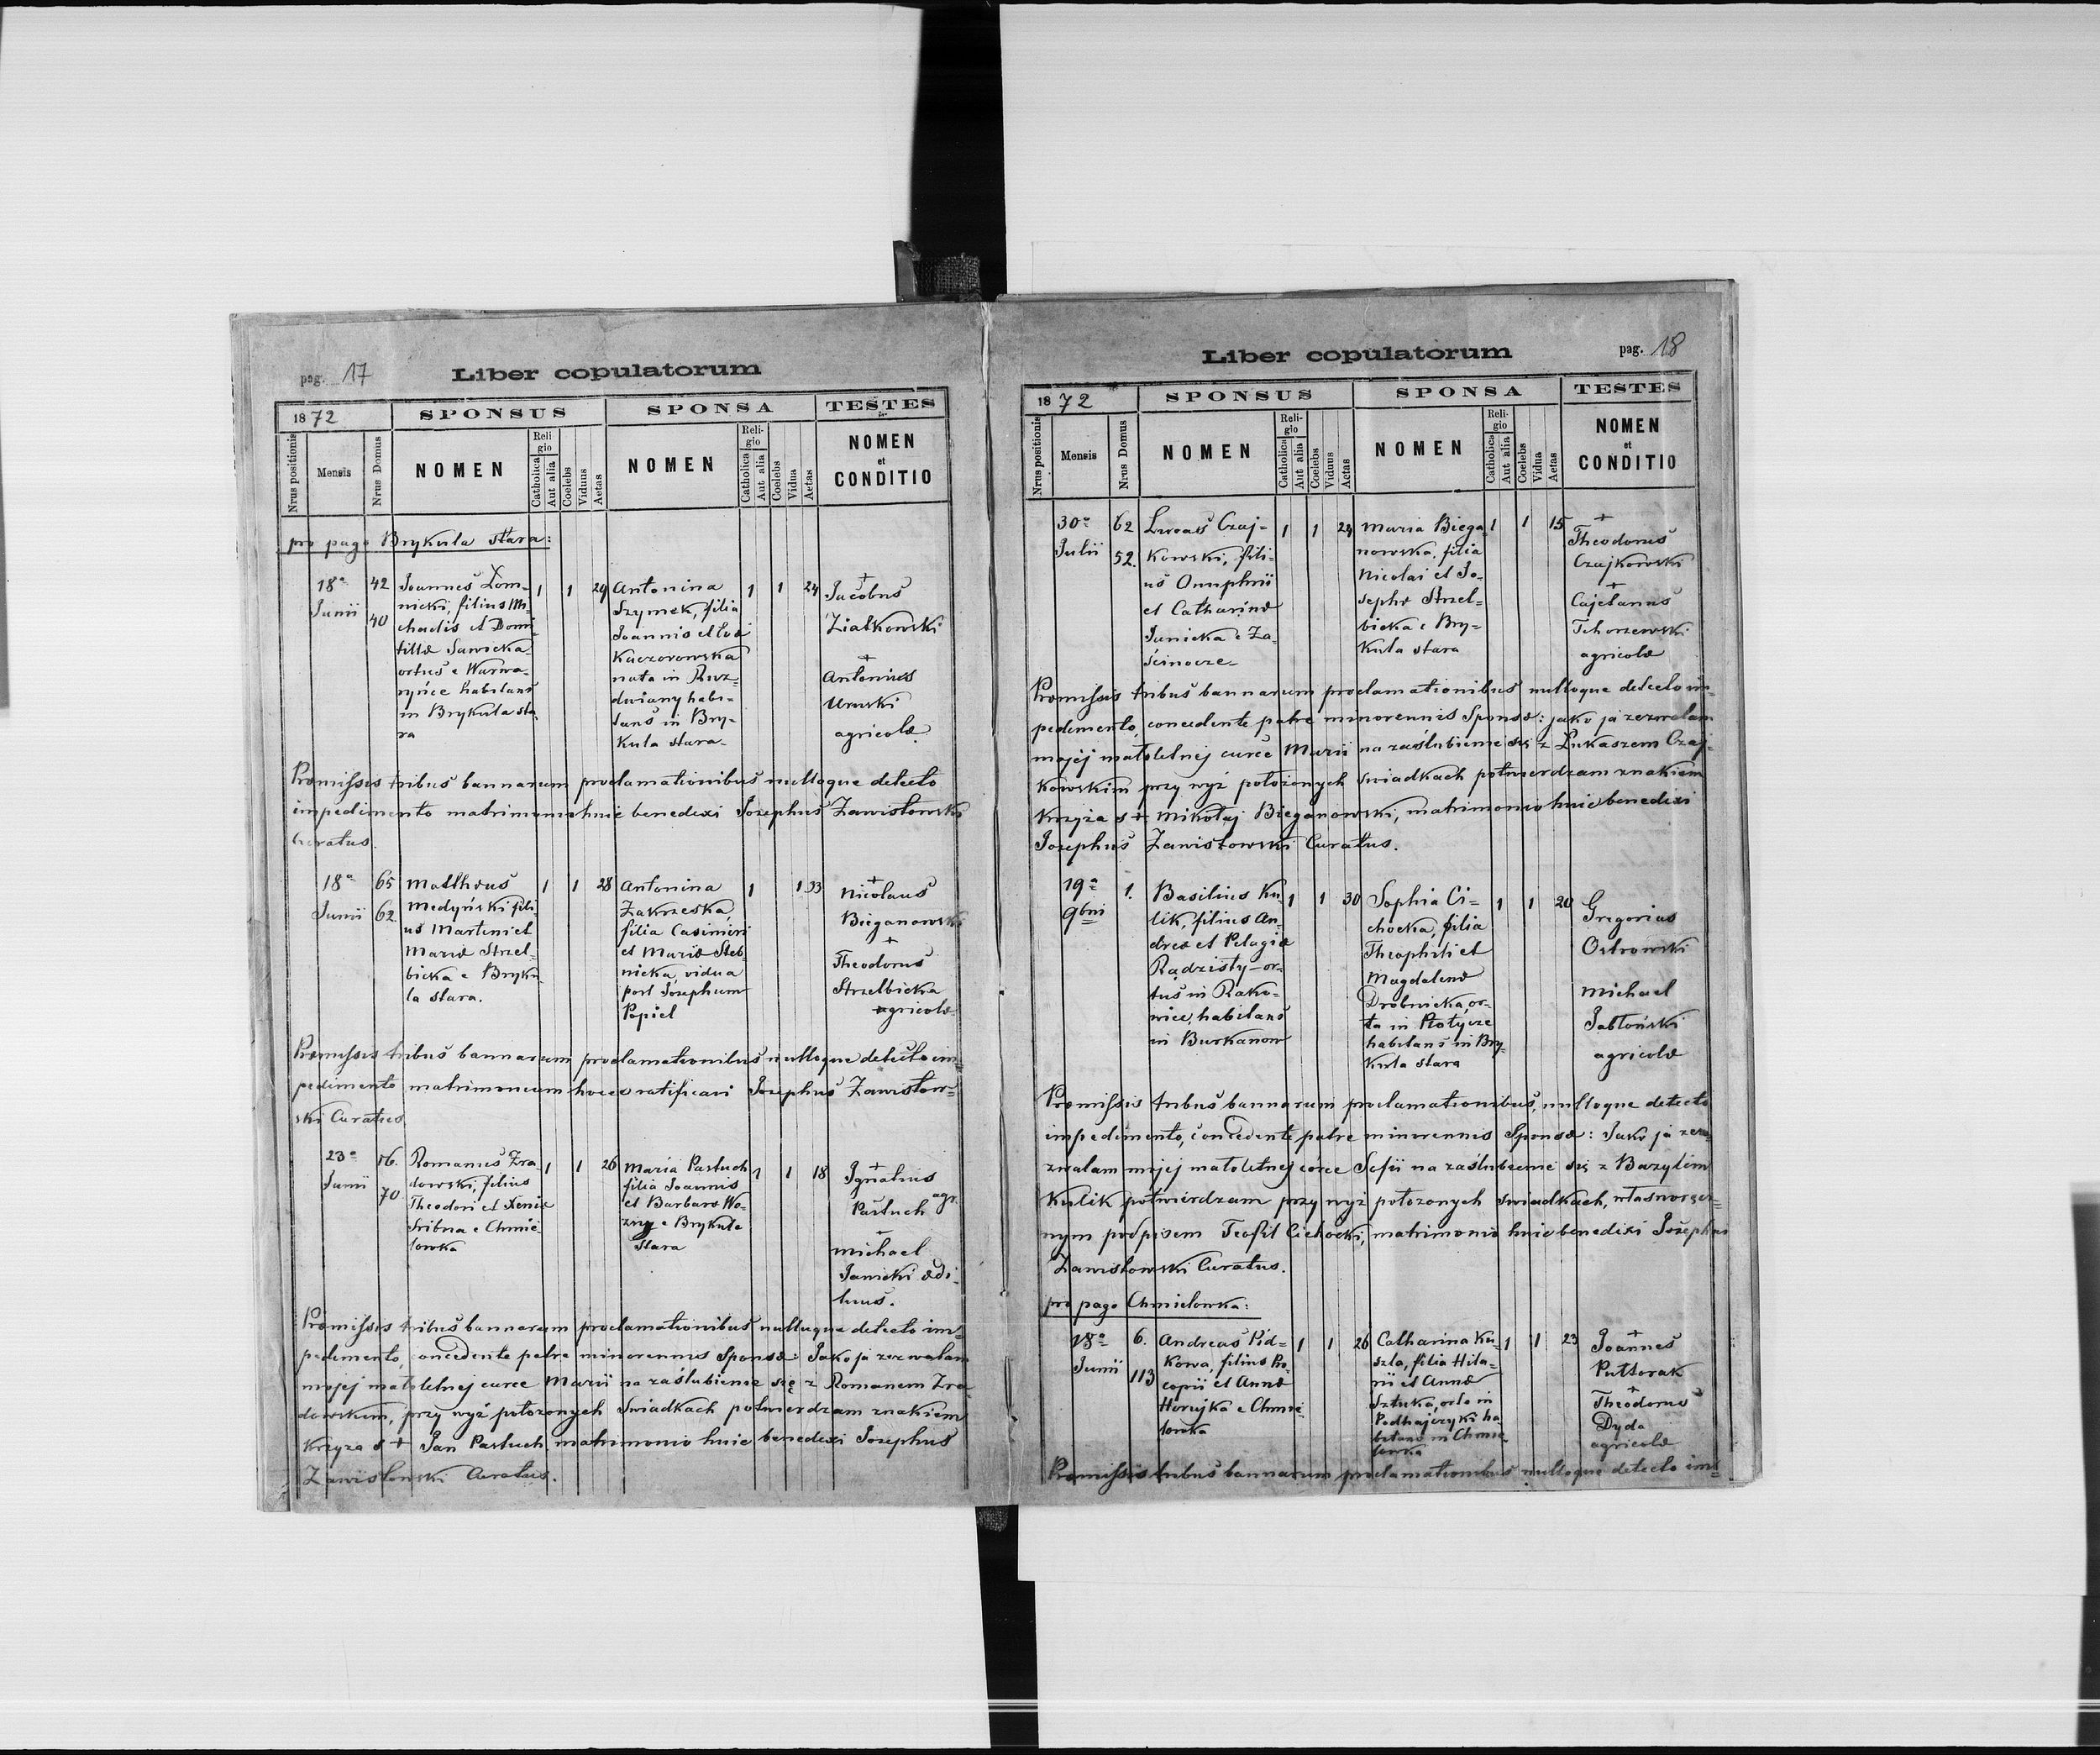 pag. 17
Liber copulatorum
1872
SPONSUS
SPONSA
TESTES
Nrus positionis
Mensis
Nrus Domus
NOMEN
Religio
Catholica
Aut alia
Coelebs
Viduus
Aetas
NOMEN
Religio
Catholica
Aut alia
Coelebs
Vidua
Aetas
NOMEN
et
CONDITIO
pro pago Brykula stara:
18a
Junii
42
40
Joannes Łom-
nicki, filius Mi-
chaelis et Domi-
tillæ Sawicka
ortus e Warwa-
ryńce habitans
in Brykula sta-
ra
1 1 29
Antonina
Szymek, filia
Joannis et Evæ
Kaczorowska
nata in Ruz-
dwiany habi-
tans in Bry-
kula stara
1 1 24
+
Jacobus
Ziatkowski
+
Antonius
Uruski
agricolæ
Præmissis tribus bannarum proclamationibus nulloque detecto
impedimento matrimonio huic benedixi Josephus Zawistowski
Curatus.
18a
Junii
65
62
Matthæus
Medyński fili-
us Martini et
Mariæ Strzel-
bicka e Bryku-
la stara.
1 1 28
Antonina
Zakrzeska,
filia Casimiri
et Mariæ Steb-
nicka, vidua
post Josephum
Popiel
1 1 33
+
Nicolaus
Bieganowski
+
Theodorus
Strzelbicka
agricolæ
Præmissis tribus bannarum proclamationibus nulloque detecto im-
pedimento matrimonium hocce ratificavi Josephus Zawistow-
ski Curatus
23a
Junii
76.
70
Romanus Zra-
dowski, filius
Theodori et Xeniæ
Sribna e Chmie-
lowka
1 1 26
Maria Pastuch
filia Joannis
et Barbaræ Wo-
zny e Brykula
stara
1 1 18
+
Ignatius
Pastuch agr.
+
Michael
Janicki ædi-
tuus.
Præmissis tribus bannarum proclamationibus nulloque detecto im-
pedimento, concedente patre minorennis Sponsæ: Jako ja zezwalam
mojej małoletnej curce Marii na zaślubienie się z Romanem Zra-
dowskim, przy wyż położonych świadkach potwierdzam znakiem
Krzyża s + Jan Pastuch matrimonio huic benedixi Josephus
Zawistowski Curatus.
pag. 18
Liber copulatorum
1872
SPONSUS
SPONSA
TESTES
Nrus positionis
Mensis
Nrus Domus
NOMEN
Religio
Catholica
Aut alia
Coelebs
Viduus
Aetas
NOMEN
Religio
Catholica
Aut alia
Coelebs
Vidua
Aetas
NOMEN
et
CONDITIO
30a
Julii
62
52.
Lucas Czaj-
kowski, fili-
us Onuphrii
et Catharinæ
Janicka e Za-
ścinocze
1 1 24
Maria Biega-
nowska, filia
Nicolai et Jo-
sephæ Strzel-
bicka e Bry-
kula stara
1 1 15
+
Theodorus
Czajkowski
+
Cajetanus
Tchorzewski
agricolæ
Præmissis tribus bannarum proclamationibus nulloque detecto im-
pedimento, concedente patre minorennis Sponsæ: jako ja zezwalam
mojej małoletnej curce Marii na zaślubienie się z Łukaszem Czaj-
kowskim przy wyż położonych swiadkach potwierdzam znakiem
Krzyża s + Mikołaj Bieganowski, matrimonio huic benedixi
Josephus Zawistowski Curatus.
19a
9bris
1.
Basilius Ku-
lik, filius An-
dreæ et Pelagiæ
Radzisty or-
tus in Rako-
wice, habitans
in Burkanow
1 1 30
Sophia Ci-
chocka, filia
Theophili et
Magdalenæ
Drobnicka, or-
ta in Płotycze
habitans in Bry-
kula stara
1 1 20
Gregorius
Ostrowski
Michael
Jabłoński
agricolæ
Præmissis tribus bannarum proclamationibus, nulloque detecto
impedimento, concedente patre minorennis Sponsæ: Jako ja zez-
zwalam mojej małoletnej córce Sofii na zaślubienie się z Bazylim
Kulik potwierdzam przy wyż położonych swiadkach, własnoręcz-
nym podpisem Teofil Cichocki, matrimonio huic benedixi Josephus
Zawistowski Curatus.
pro pago Chmielowka:
18a
Junii
6.
113
Andreas Pid-
kowa, filius Pro-
copii et Annæ
Horujka e Chmie-
lowka
1 1 26
Catharina Ku-
szla, filia Hila-
rii et Annæ
Sztuka, orta in
Podhajczyki ha-
bitans in Chmie-
lowka
1 1 23
+
Joannes
Pułtorak
+
Theodorus
Dyda
agricolæ
Præmissis tribus bannarum proclamationibus nulloque detecto im-